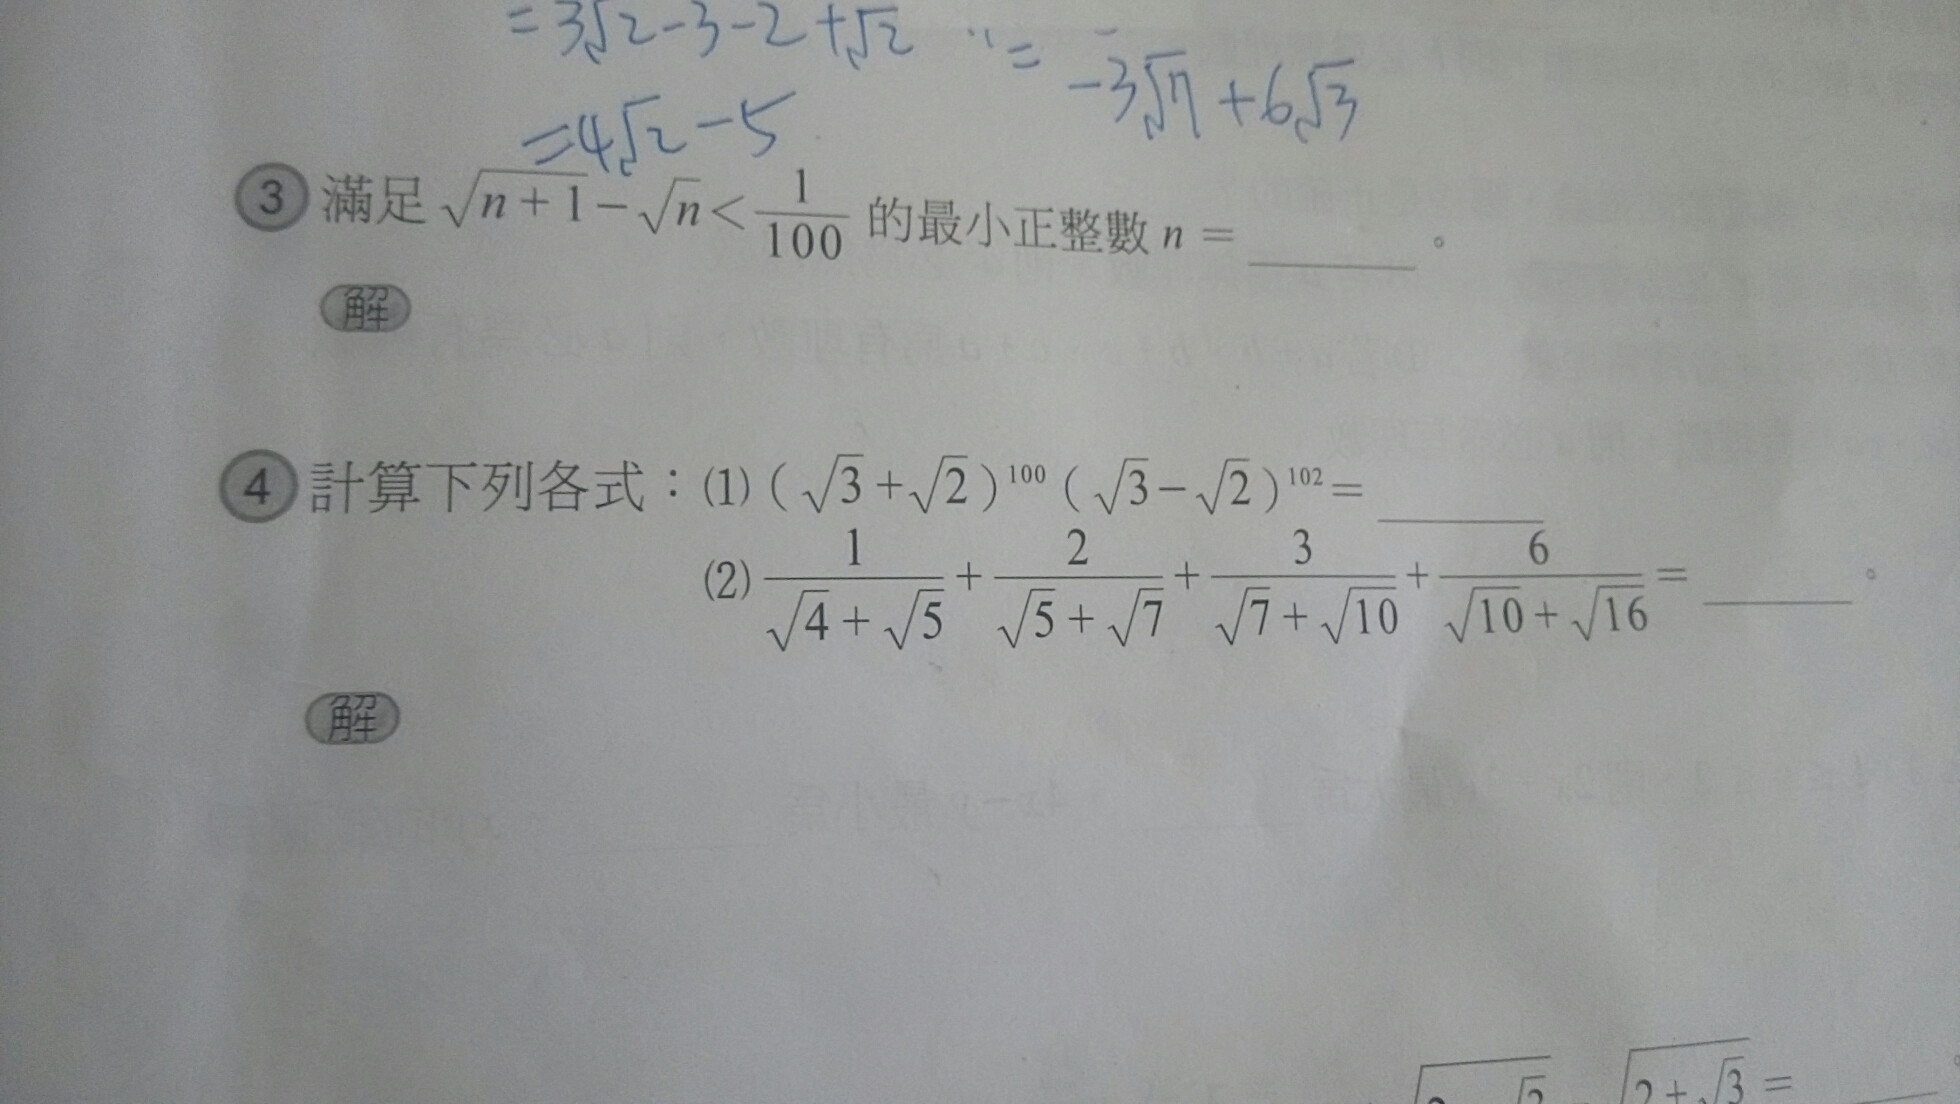 =3√2-3-2+√2
=
-3√7+6√3
=4√2-5
③ 滿足 √(n+1)-√n<1/100 的最小正整數 n = ______ 。
解
④ 計算下列各式:⑴(√3+√2)^100 (√3-√2)^102= ______
⑵ 1/(√4+√5) + 2/(√5+√7) + 3/(√7+√10) + 6/(√10+√16) = ______ 。
解